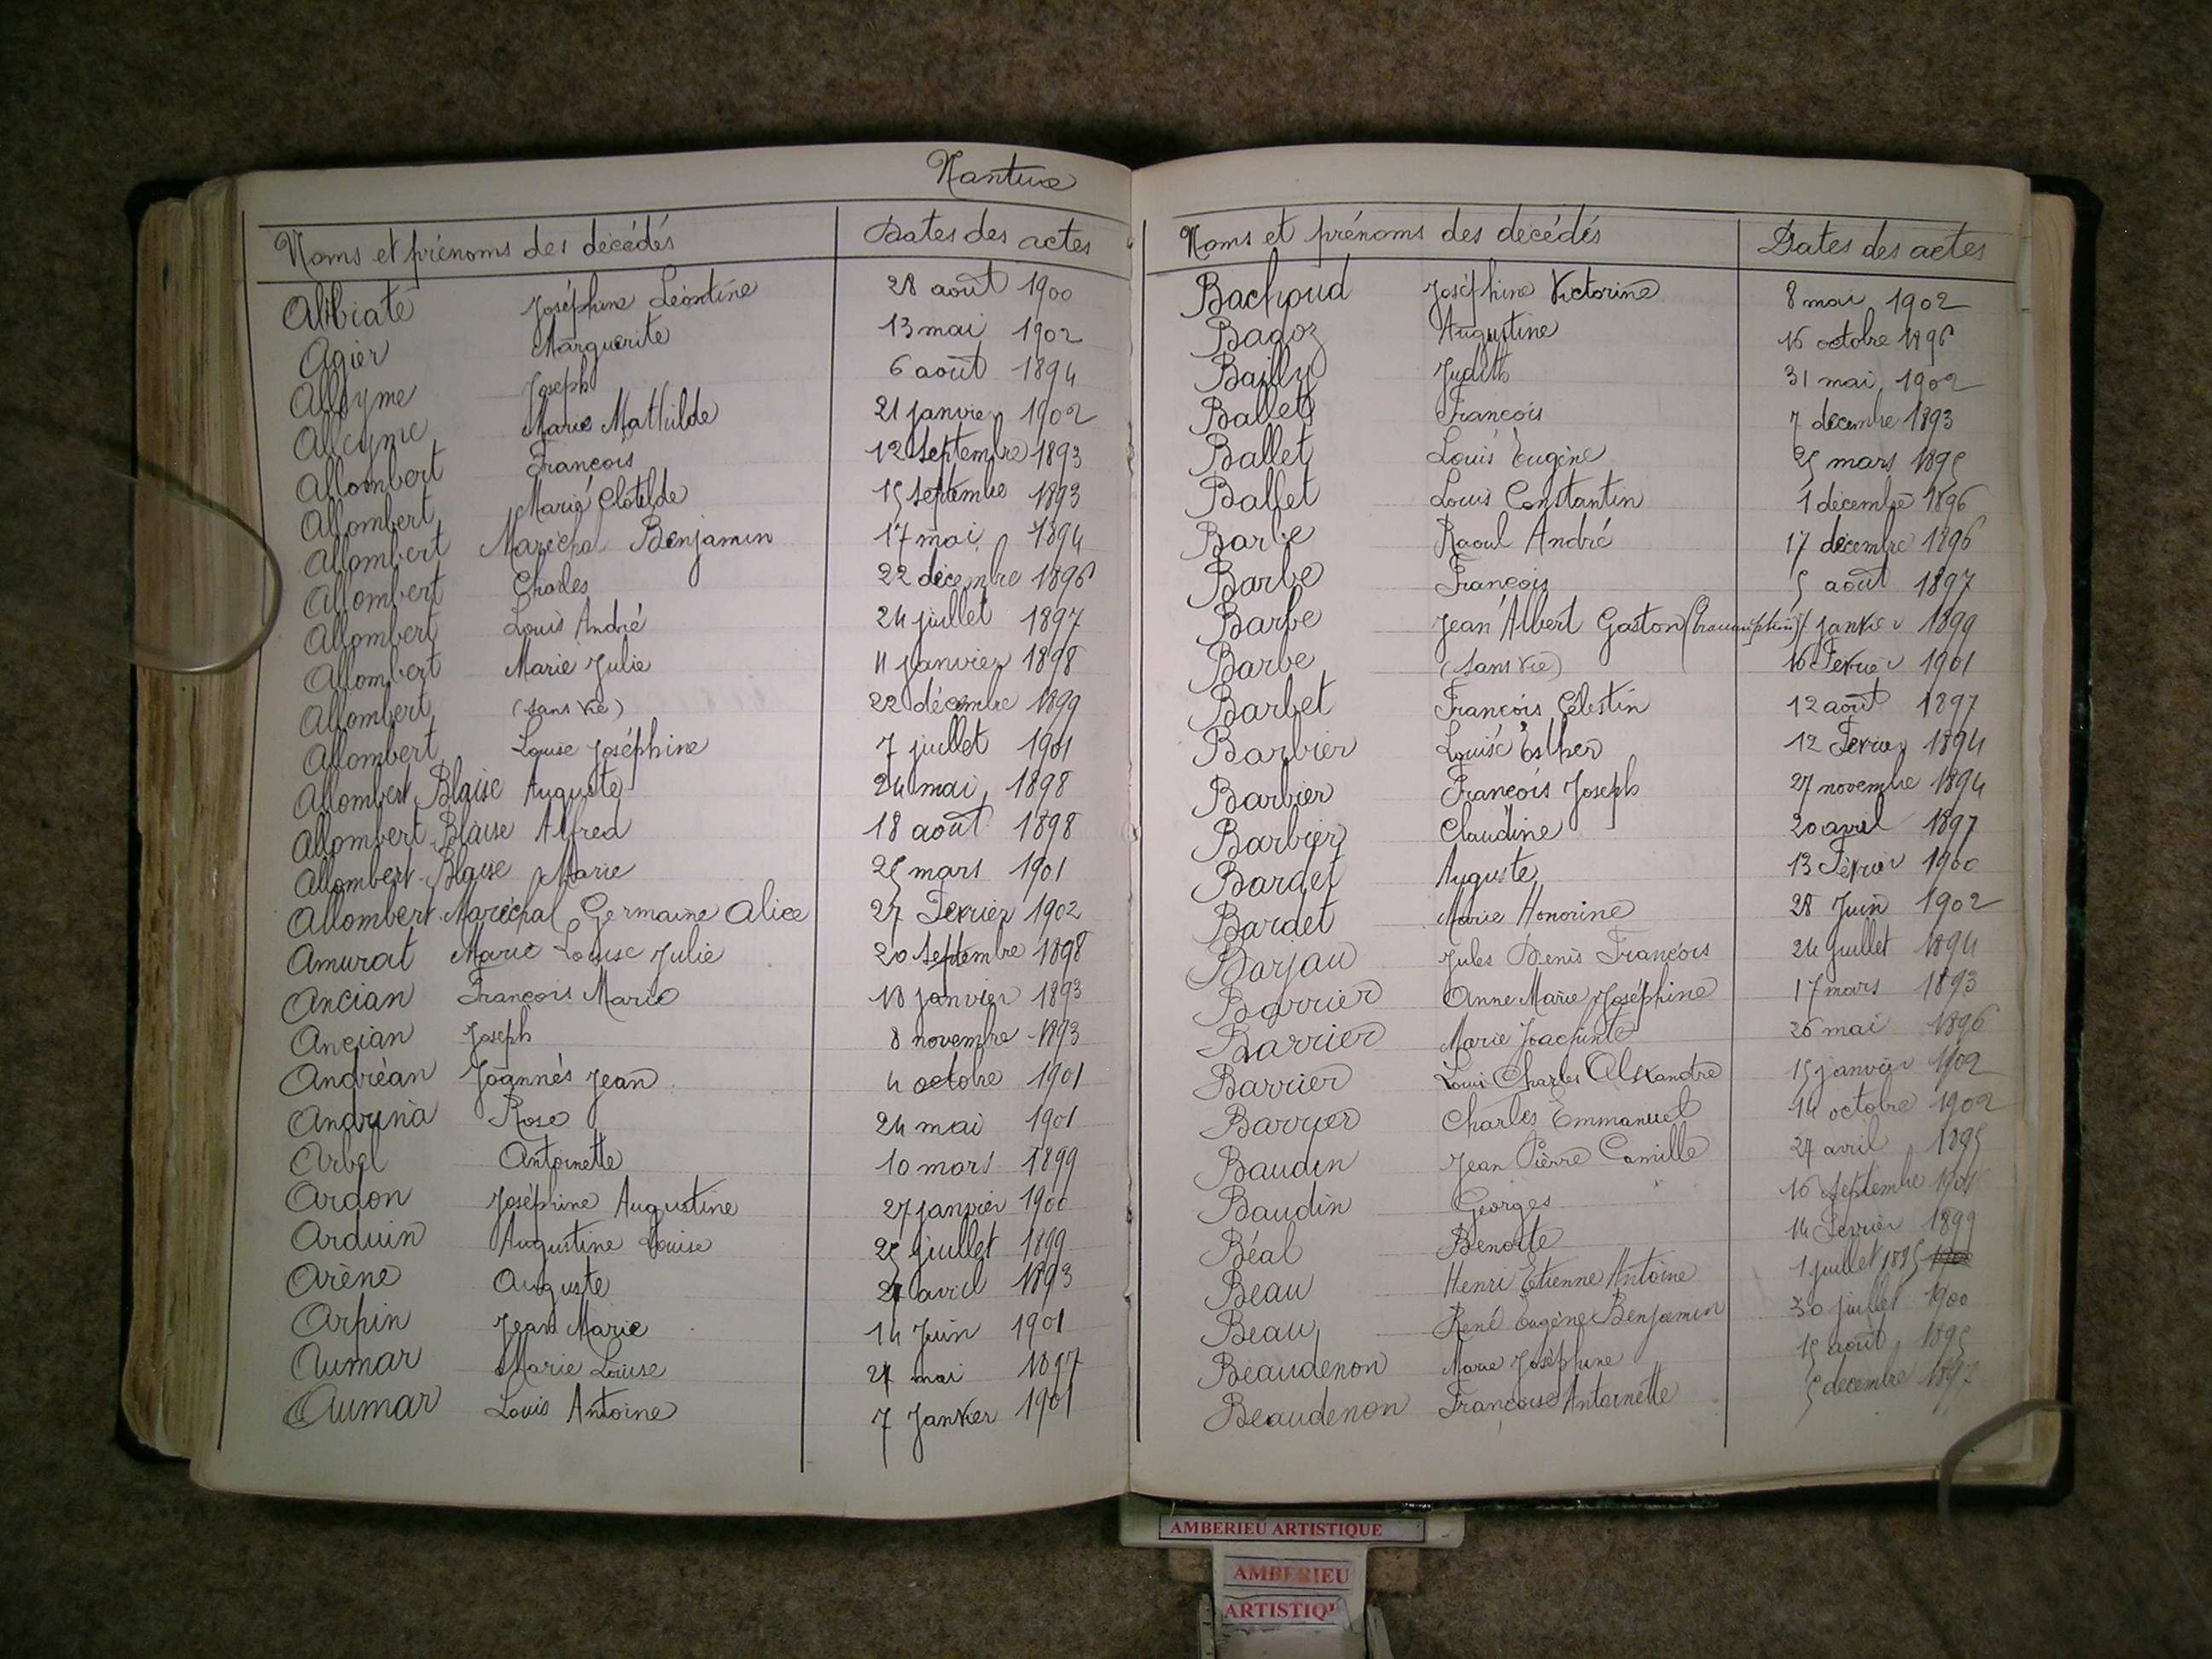 Nantua
Noms et prénoms des décédés Dates des actes
Abbiate Joséphine Léontine 28 août 1900
Agier Marguerite 13 mai 1902
Alleyme Joseph 6 août 1894
Alleyme Marie Mathilde 21 janvier 1902
Allombert François 12 septembre 1893
Allombert Marie Clotilde 15 septembre 1893
Allombert Maréchal Benjamin 17 mai 1894
Allombert Charles 22 décembre 1896
Allombert Louis André 24 juillet 1897
Allombert Marie Julie 11 janvier 1898
Allombert (sans vie) 22 décembre 1899
Allombert Louise Joséphine 7 juillet 1901
Allombert Blaise Auguste 24 mai 1898
Allombert Blaise Alfred 18 août 1898
Allombert Blaise Marie 25 mars 1901
Allombert Maréchal Germaine Alice 27 Février 1902
Amurat Marie Louise Julie 20 septembre 1898
Ancian François Marie 18 janvier 1893
Ancian Joseph 8 novembre 1893
Andréan Joannès Jean 4 octobre 1901
Andrina Rose 24 mai 1901
Arbel Antoinette 10 mars 1899
Ardon Joséphine Augustine 27 janvier 1900
Arduin Augustine Louise 25 juillet 1899
Arène Auguste avril 1893
Arpin Jean Marie 14 Juin 1901
Aumar Marie Louise mai 1897
Aumar Louis Antoine 7 Janvier 1901
Noms et prénoms des décédés Dates des actes
Bachoud Joséphine Victorine 8 mai 1902
Badoz Augustine 16 octobre 1896
Bailly Judith 31 mai 1902
Ballet François 7 décembre 1893
Ballet Louis Eugène 25 mars 1895
Ballet Louis Constantin 1 décembre 1896
Barbe Raoul André 17 décembre 1896
Barbe François 5 août 1897
Barbe Jean Albert Gaston (transcription) janvier 1899
Barbe (sans vie) 16 Février 1901
Barbet François Célestin 12 août 1897
Barbier Louise Esther 12 Février 1894
Barbier François Joseph 27 novembre 1894
Barbier Claudine 20 avril 1897
Bardet Auguste 13 Février 1900
Bardet Marie Honorine 28 Juin 1902
Barjau Jules Denis François 24 juillet 1894
Barrier Anne Marie Joséphine 17 mars 1893
Barrier Marie Joachinte 26 mai 1896
Barrier Louis Charles Alexandre 15 janvier 1902
Barrier Charles Emmanuel 14 octobre 1902
Baudin Jean Pierre Camille 27 avril 1895
Baudin Georges 16 septembre 1901
Béal Benoîte 14 Février 1899
Beau Henri Etienne Antoine 1 juillet 1895
Beau René Eugène Benjamin 30 juillet 1900
Beaudenon Marie Joséphine 15 août 1895
Beaudenon Françoise Antoinette 5 décembre 1897
AMBERIEU ARTISTIQUE
AMBERIEU
ARTISTIQU